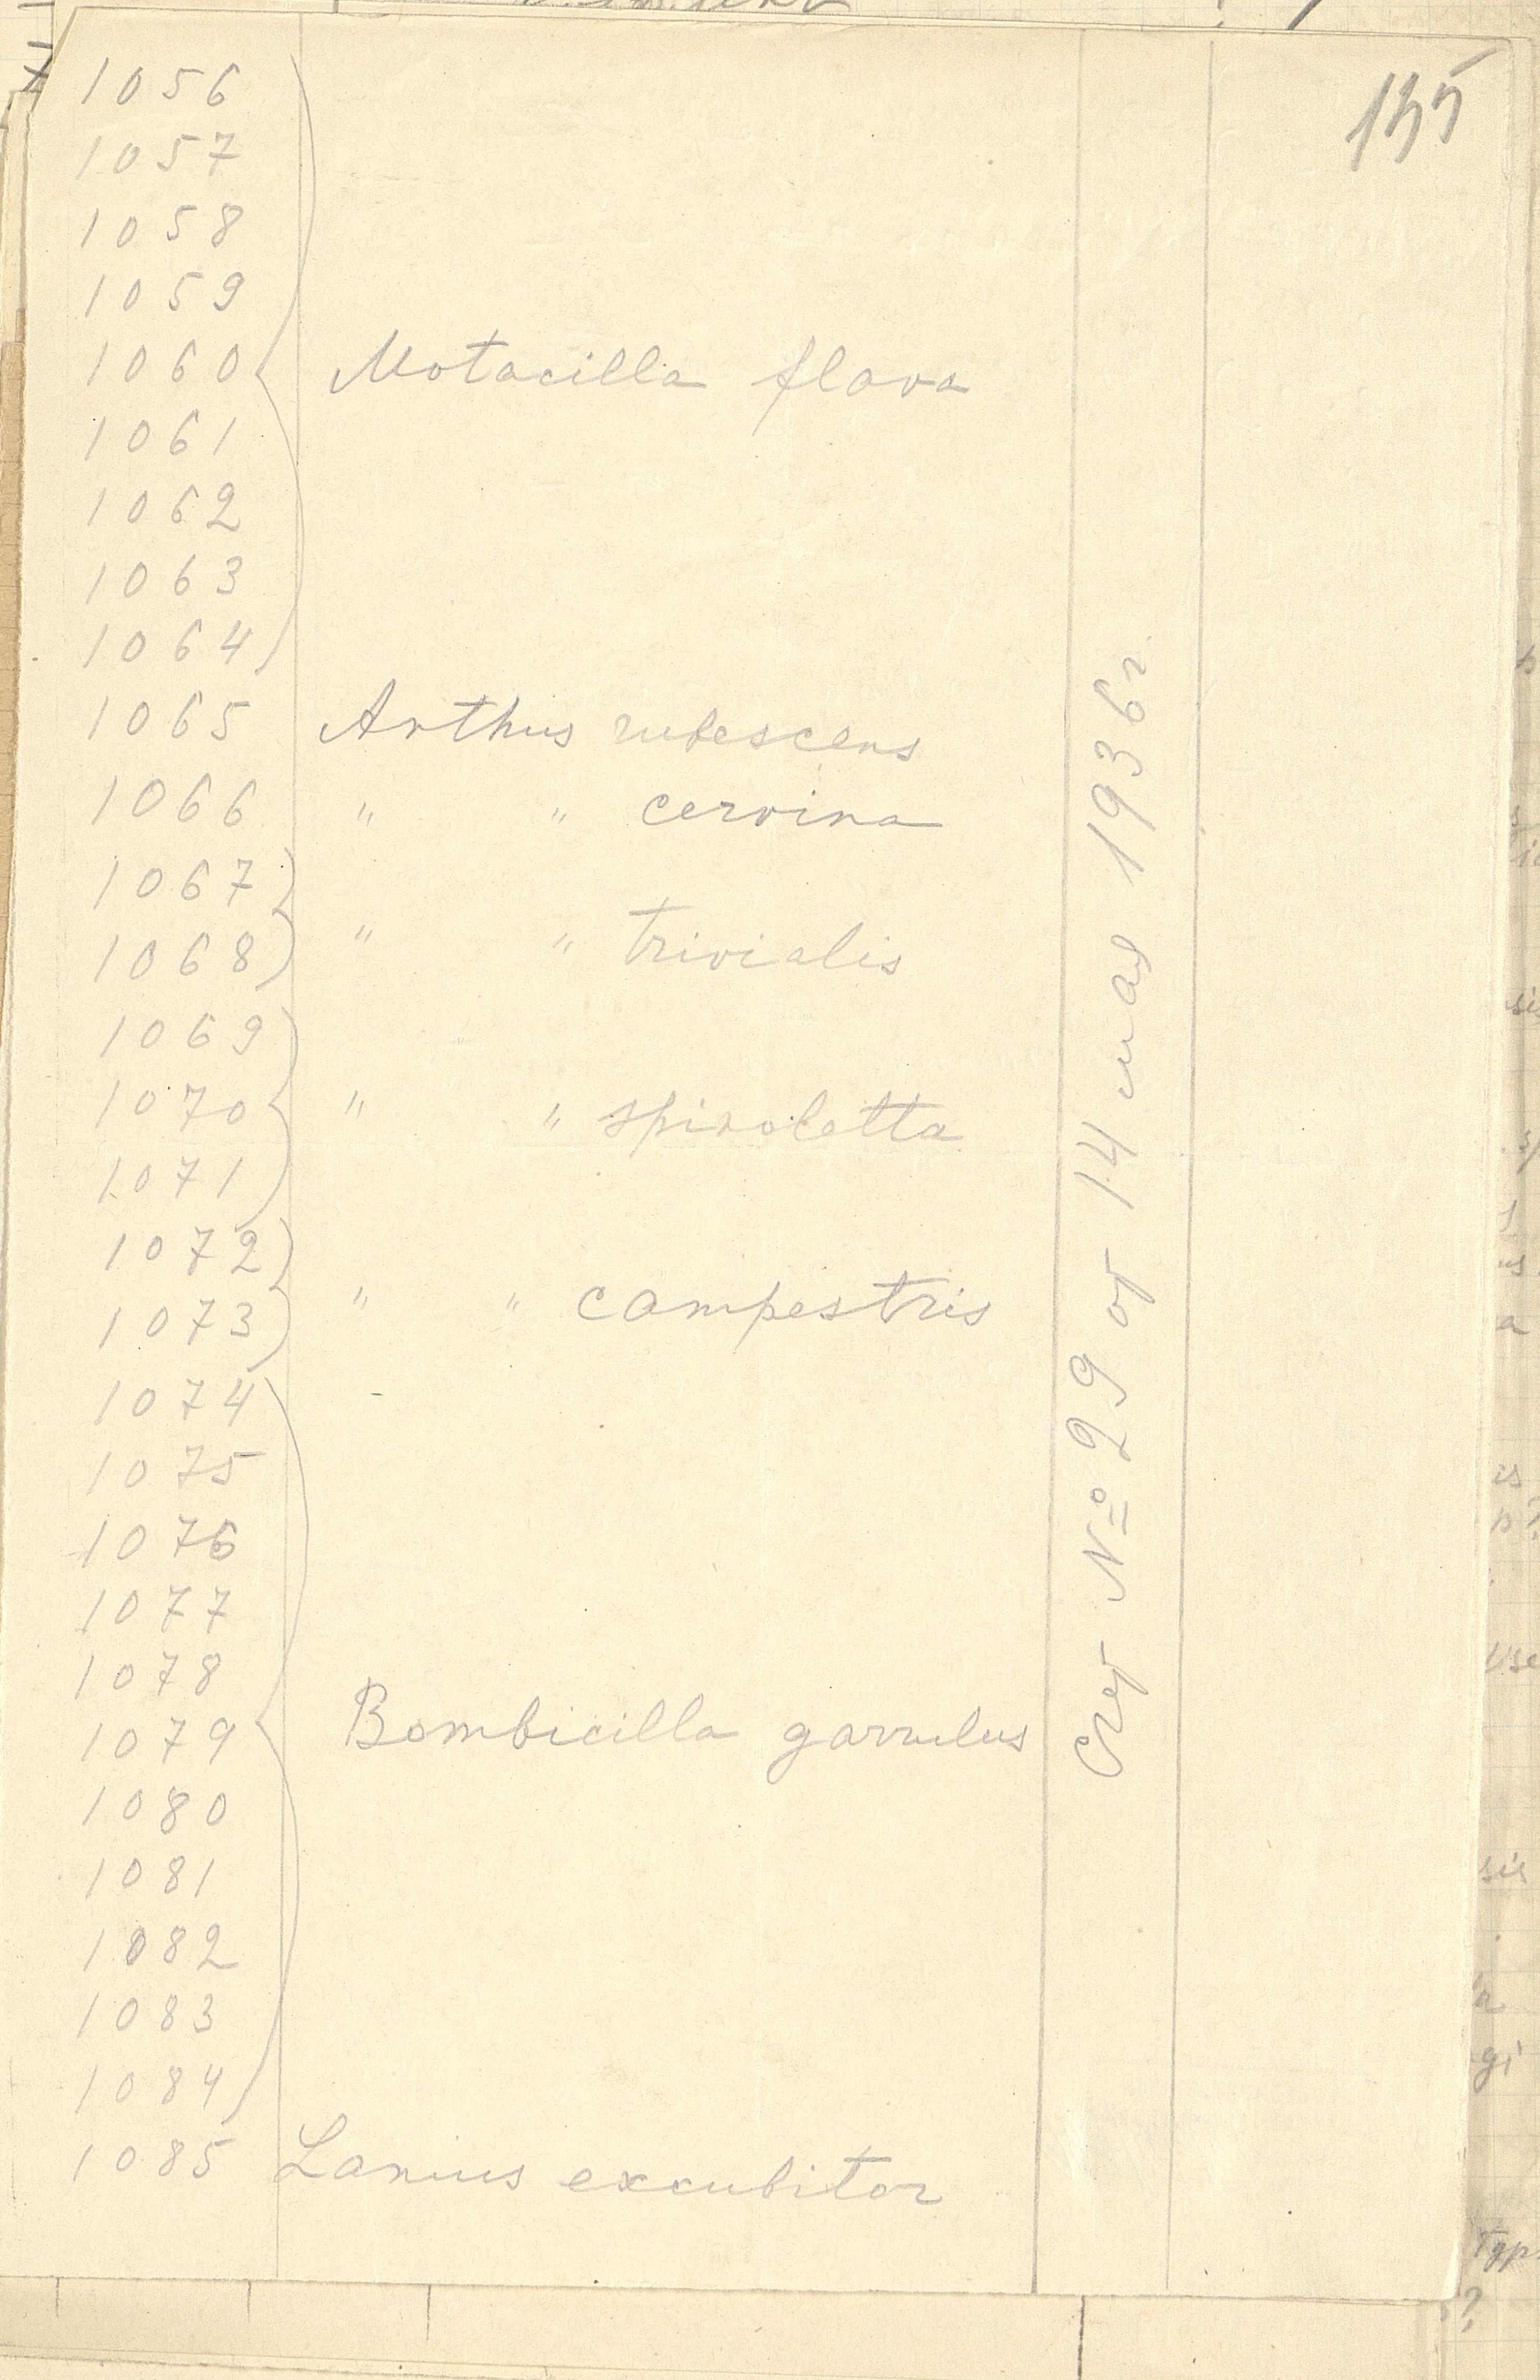 155
1056
1057
1058
1059
1060 Motacilla flava
1061
1062
1063
1064
1065 Anthus rubescens
1066 " " cervina
1067
1068 " " trivialis
1069
1070 " " spinoletta
1071
1072
1073 " " campestris
1074
1075
1076
1077
1078
1079 Bombicilla garrulus
1080
1081
1082
1083
1084
1085 Lanius excubitor
Счет № 29 от 14 мая 1936г.